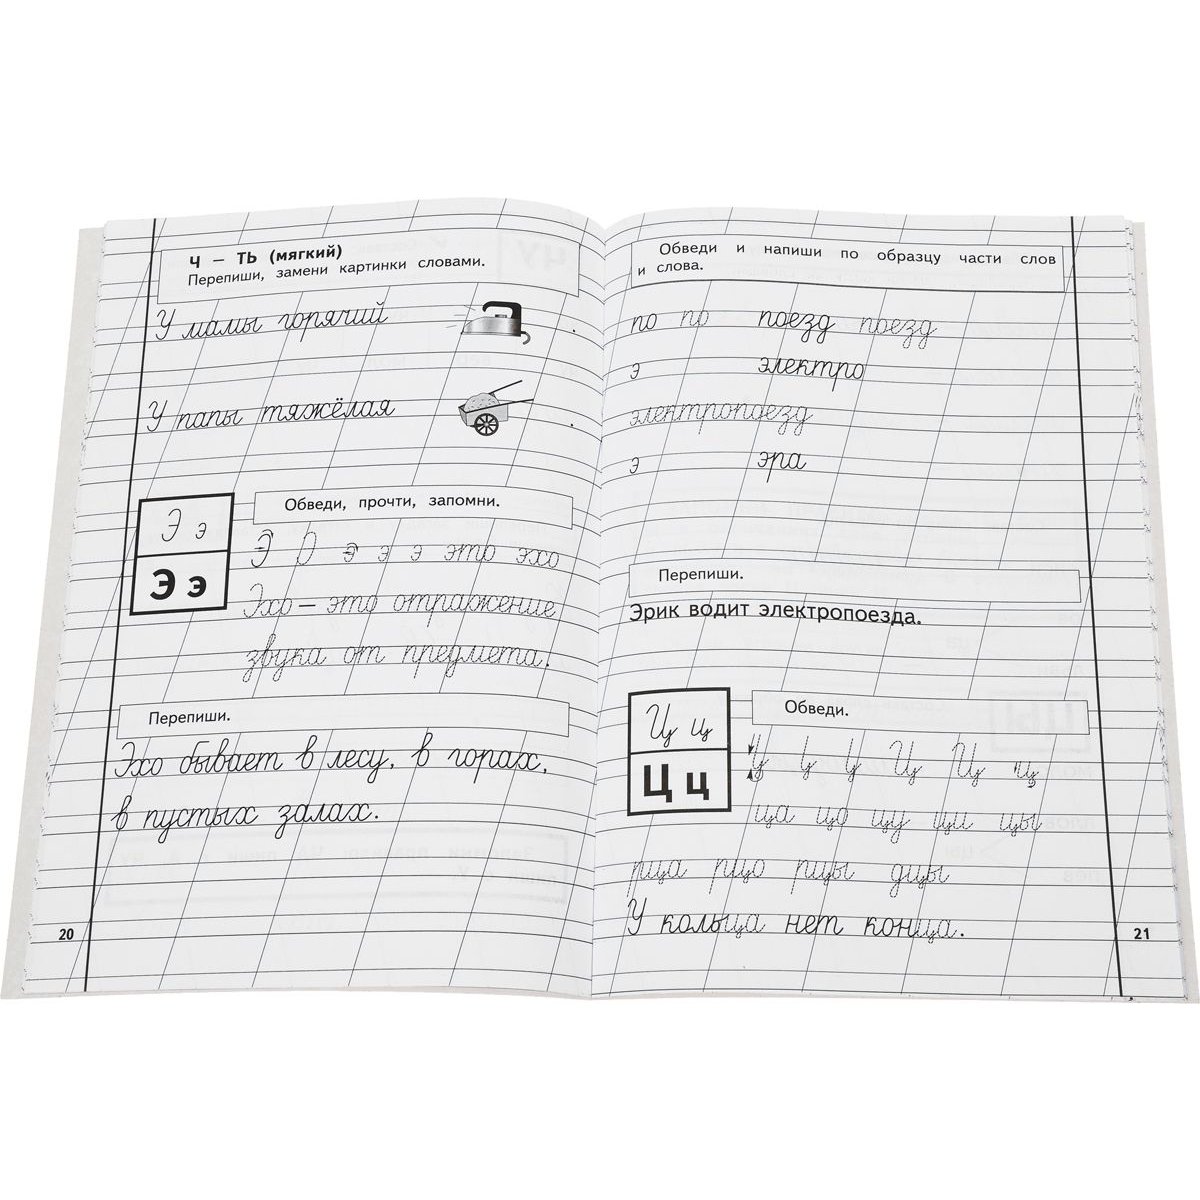 Ч – ТЬ (мягкий)
Перепиши, замени картинки словами.
У мамы горячий
У папы тяжёлая
Э э
Э э
Обведи, прочти, запомни.
Э э э э это эхо
Эхо – это отражение
звука от предмета.
Перепиши.
Эхо бывает в лесу, в горах,
в пустых залах.
20
Обведи и напиши по образцу части слов
и слова.
по по поезд поезд
э электро
электропоезд
э эра
Перепиши.
Эрик водит электропоезда.
Ц ц
Ц ц
Обведи.
Ц Ц ц
ца цо цу ци цы
рца рцо рцы дцы
У кольца нет конца.
21